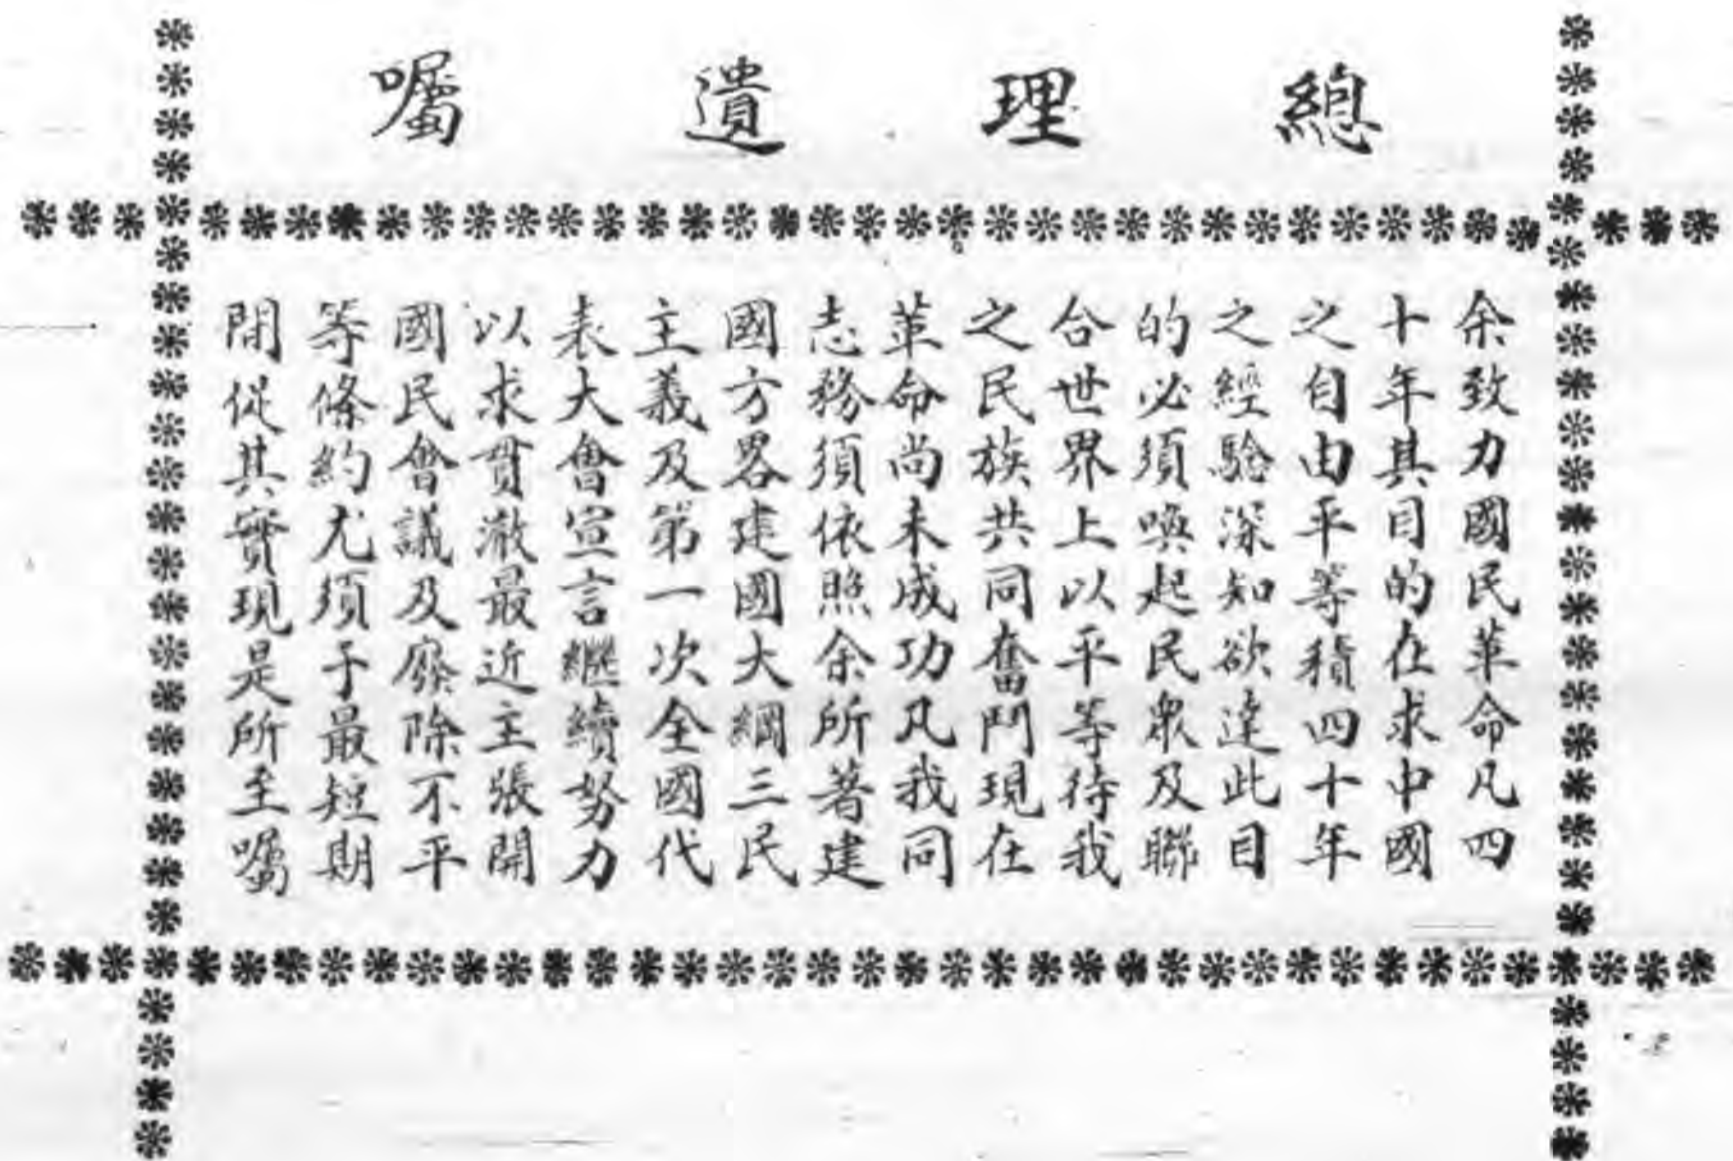 總理遺囑
余致力國民革命凡四
十年其目的在求中國
之自由平等積四十年
之經驗深知欲達此目
的必須喚起民眾及聯
合世界上以平等待我
之民族共同奮鬥現在
革命尚未成功凡我同
志務須依照余所著建
國方畧建國大綱三民
主義及第一次全國代
表大會宣言繼續努力
以求貫澈最近主張開
國民會議及廢除不平
等條約尤須于最短期
間從其實現是所至囑